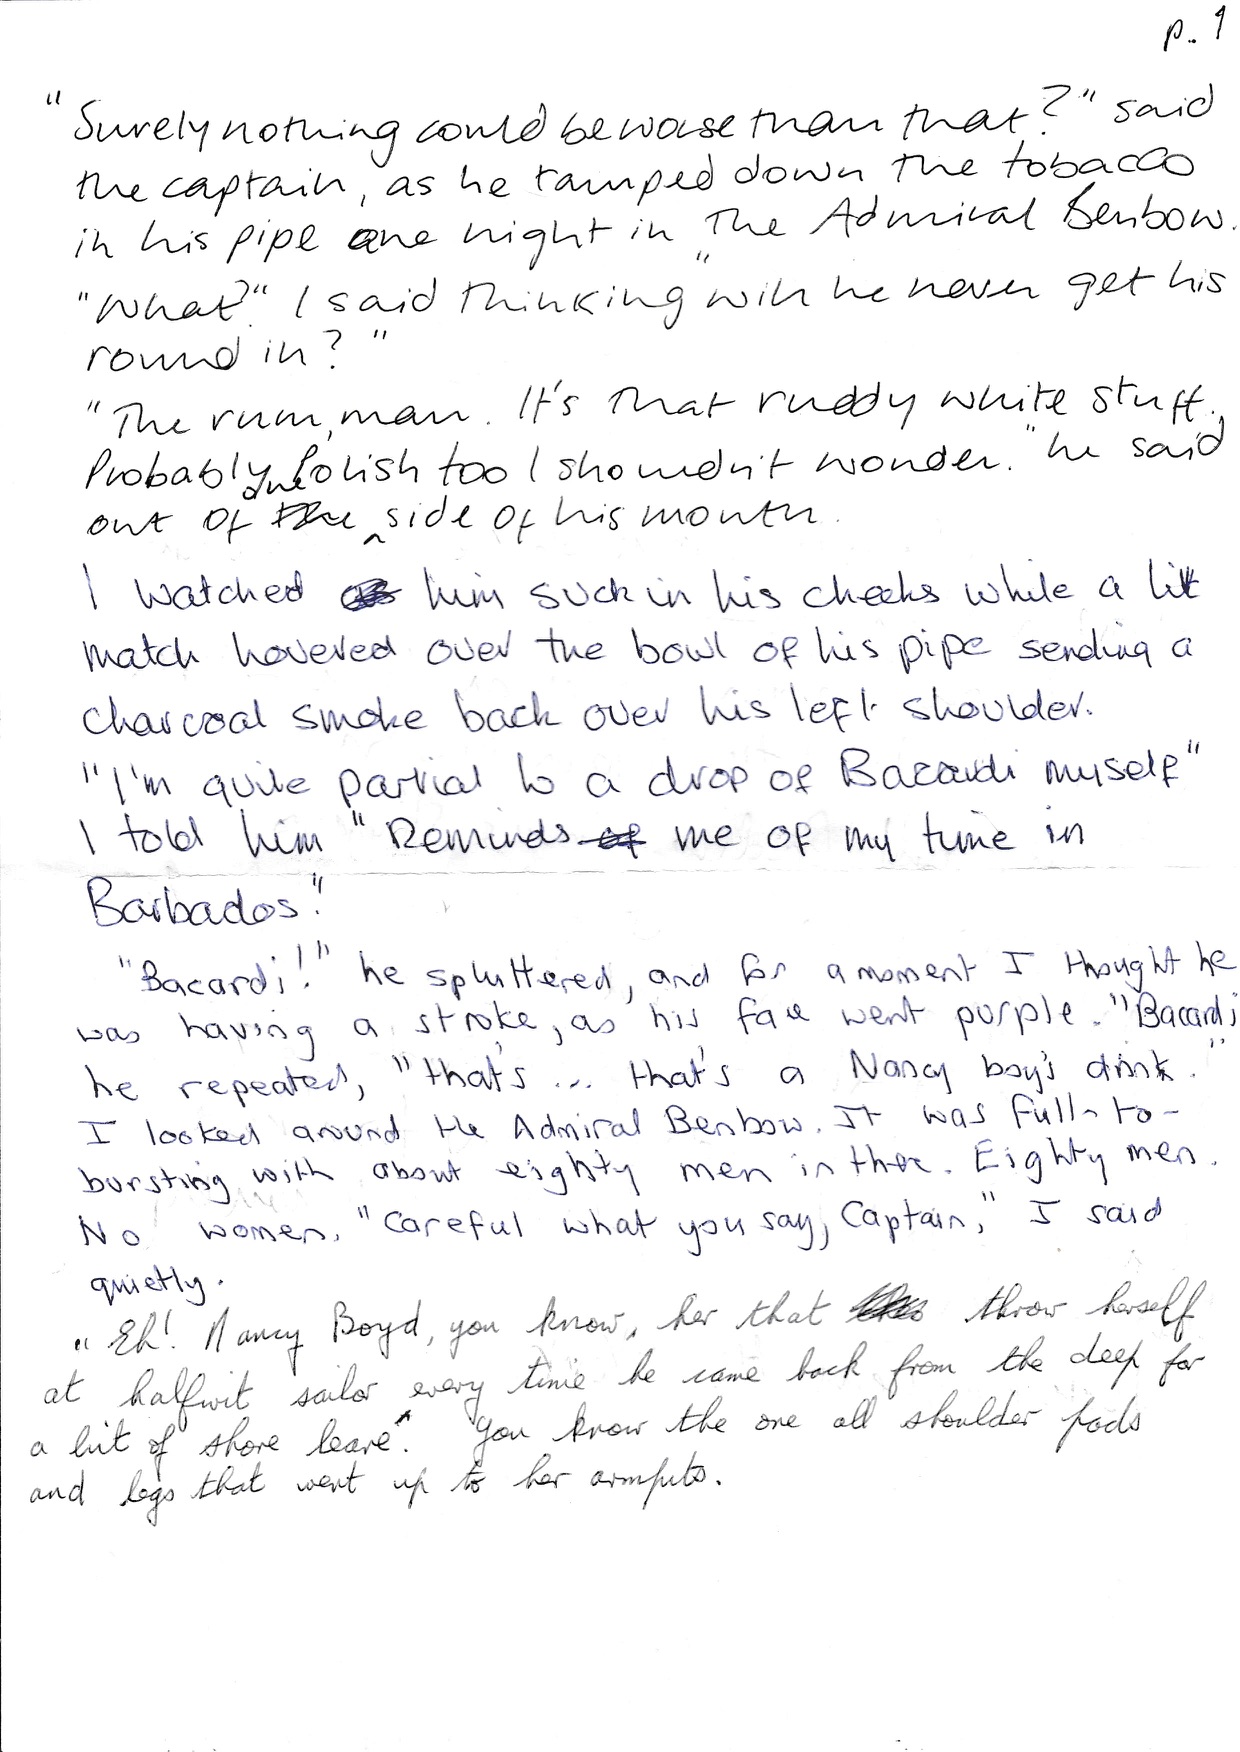 p. 1
"Surely nothing could be worse than that?" said
the captain, as he tamped down the tobacco
in his pipe one night in The Admiral Benbow.
"What?" I said thinking "will he never get his
round in?"
"The rum, man. It's that ruddy white stuff.
Probably Polish too I shouldn't wonder." he said
out of the one side of his mouth.
I watched him suck in his cheeks while a lit
match hovered over the bowl of his pipe sending a
charcoal smoke back over his left shoulder.
"I'm quite partial to a drop of Bacardi myself"
I told him "Reminds of me of my time in
Barbados."
"Bacardi!" he spluttered, and for a moment I thought he
was having a stroke, as his face went purple. "Bacardi"
he repeated, "that's ... that's a Nancy boy's drink."
I looked around the Admiral Benbow. It was full-to-
bursting with about eighty men in there. Eighty men.
No women. "Careful what you say, Captain," I said
quietly.
"Eh! Nancy Boyd, you know, her that throw herself
at halfwit sailor every time he came back from the deep for
a bit of shore leave. You know the one all shoulder pads
and legs that went up to her armpits.